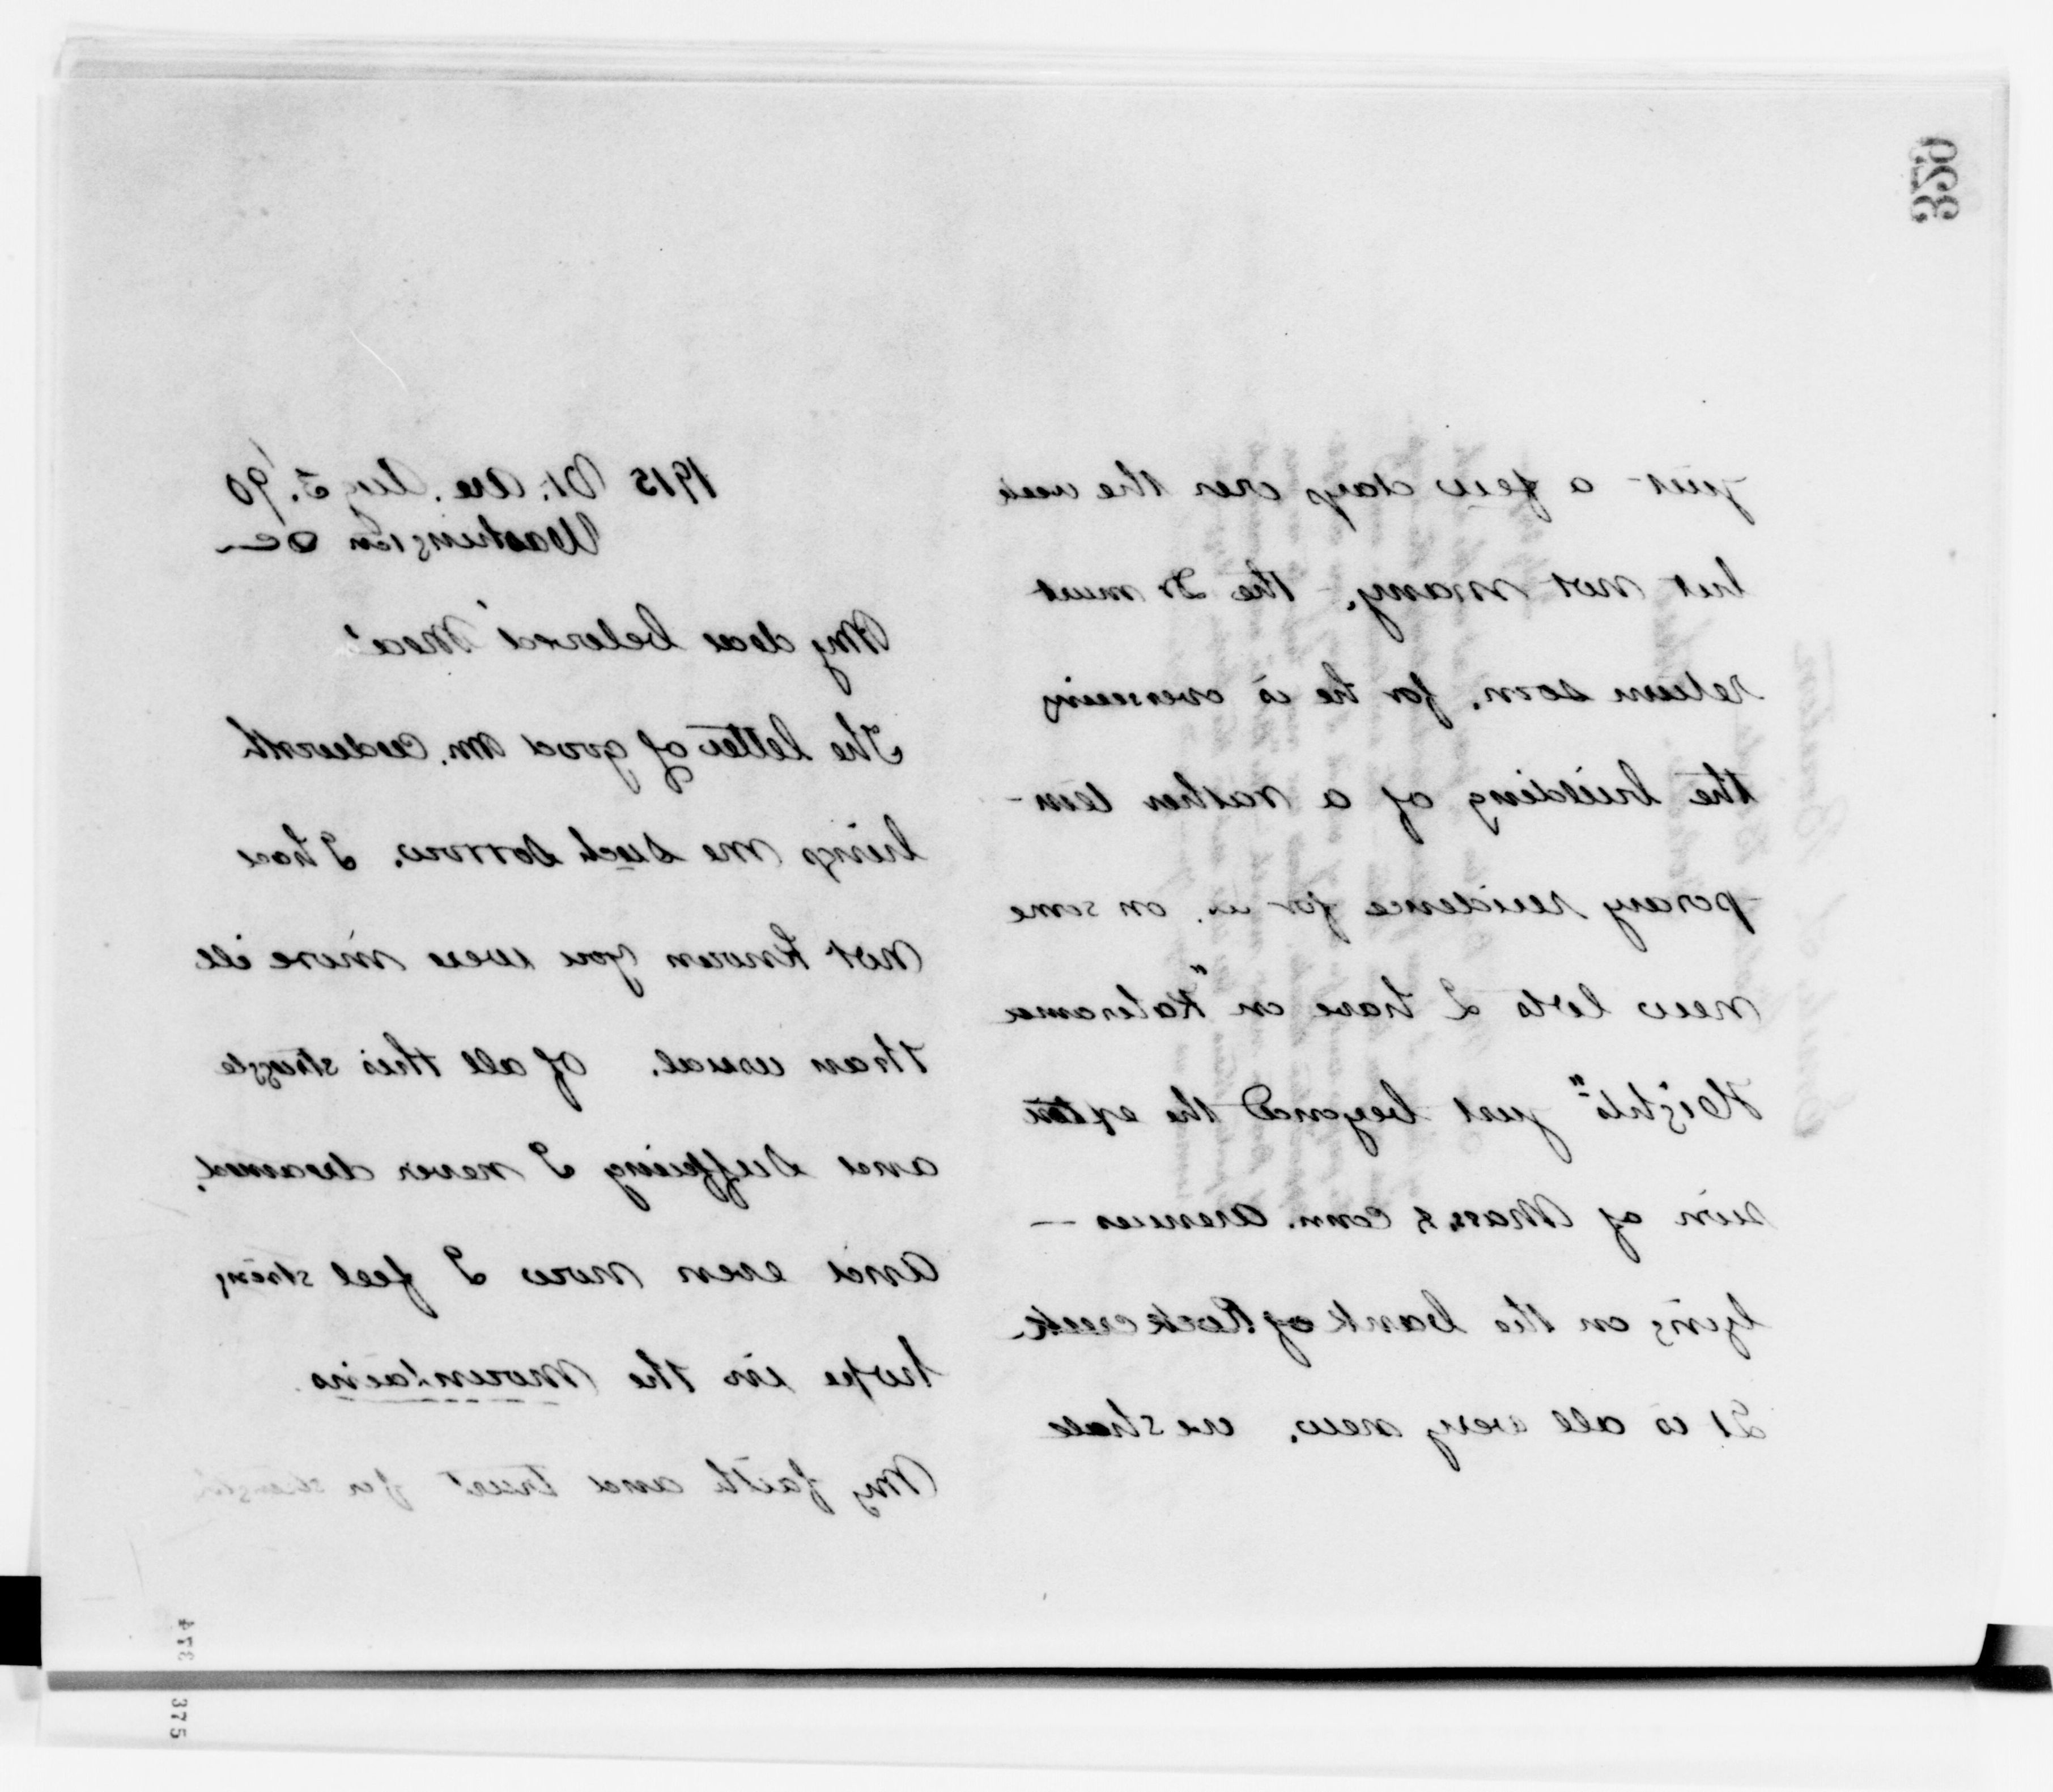 350
just a few days over the week
but not many. The Dr must
return soon, for he is overseeing
the building of a rather tem-
porary residence for us, on some
new lots I have on "Kalerama
Heights" just beyond the exten
sion of Mass, & Conn. Avenues —
lying on the bank of Rock creek.
It is all very new. we shall
1915 Vt. Ave. Aug 3. '90
Washington DC
My dear beloved "Med"
The letter of good Mr. Cudworth
brings me such sorrow. I had
not known you were more ill
than usual. Of all this struggle
and suffering I never dreamed.
And even now I feel strong
hope in the mountains.
My faith and trust for strength
374
375